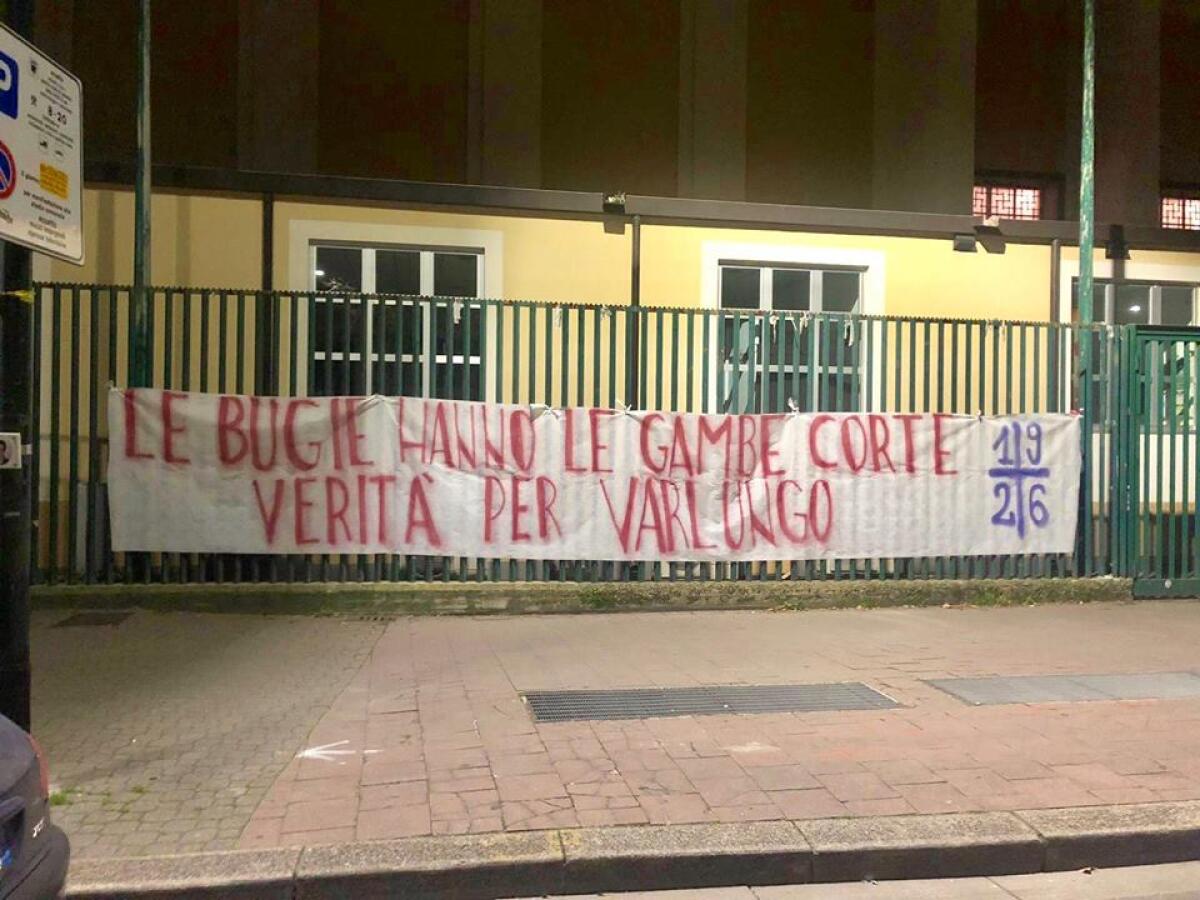 P
8-20
LE BUGIE HANNO LE GAMBE CORTE
VERITÀ PER VARLUNGO
19
26